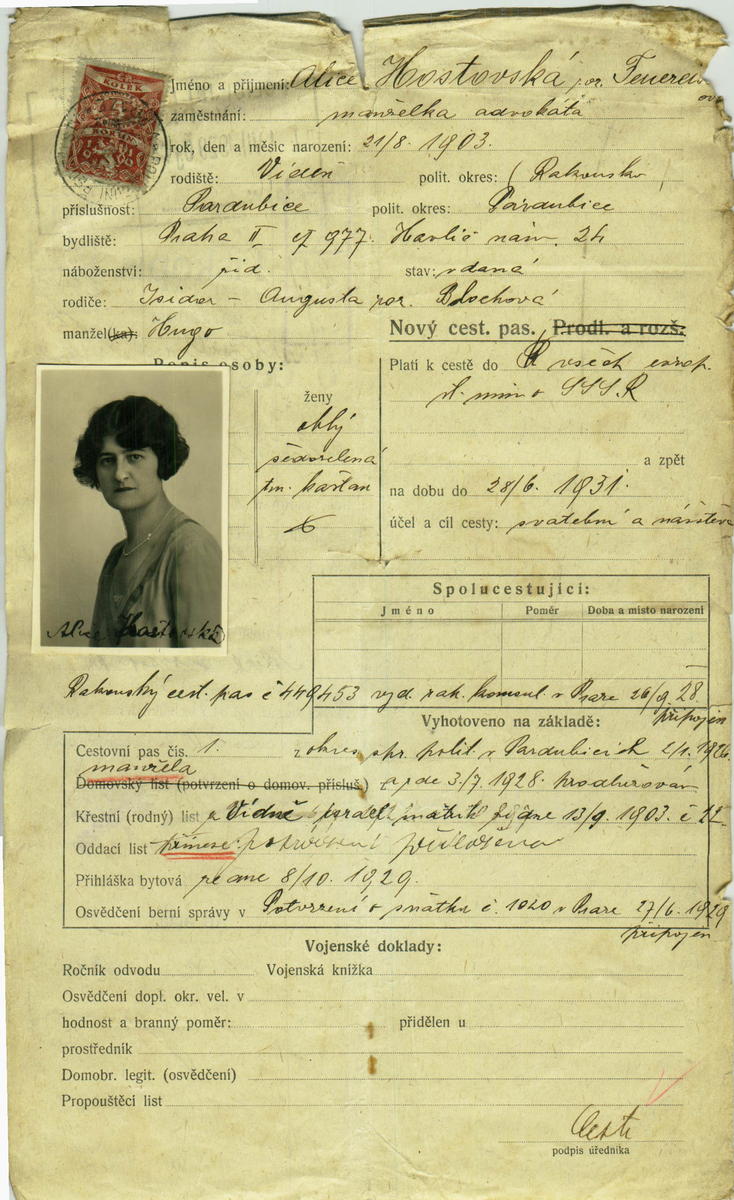 KOLEK
Jméno a příjmení: Alice Hostovská, roz. Feuerel
zaměstnání: manželka advokáta
rok, den a měsíc narození: 21/8. 1903.
rodiště: Vídeň polit. okres: (Rakousko)
příslušnost: Pardubice polit. okres: Pardubice
bydliště: Praha II čp 977. Havlíč. nám. 24
náboženství: žid. stav: vdaná
rodiče: Isidor – Augusta roz. Blochová
manžel(ka): Hugo Nový cest. pas. Prodl. a rozš.:
Popis osoby: Platí k cestě do všech evrop.
ženy st. mimo SSSR
oblý
šedozelená a zpět
tm. kaštan na dobu do 28/6. 1931.
účel a cíl cesty: svatební a návštěva
Alice Hostovská
Spolucestující:
Jméno Poměr Doba a místo narození
Rakouský cest. pas č 449453 vyd. rak. konsul. v Praze 26/9. 28
připojen
Vyhotoveno na základě:
Cestovní pas čís. 1. z okres. spr. polit. v Pardubicích 2/1. 1926.
manžela
Domovský list (potvrzení o domov. přísluš.) a pde 3./7. 1928. prodlužován
Křestní (rodný) list z Vídně israel. matrik ze dne 13/9. 1903. č
Oddací list přinese potvrzení předloženo
Přihláška bytová ze dne 8/10. 1929.
Osvědčení berní správy v Potvrzení o sňatku č. 1020 v Praze 27/6. 1929
připojen
Vojenské doklady:
Ročník odvodu Vojenská knížka
Osvědčení dopl. okr. vel. v
hodnost a branný poměr: přidělen u
prostředník
Domobr. legit. (osvědčení)
Propouštěcí list
podpis úředníka